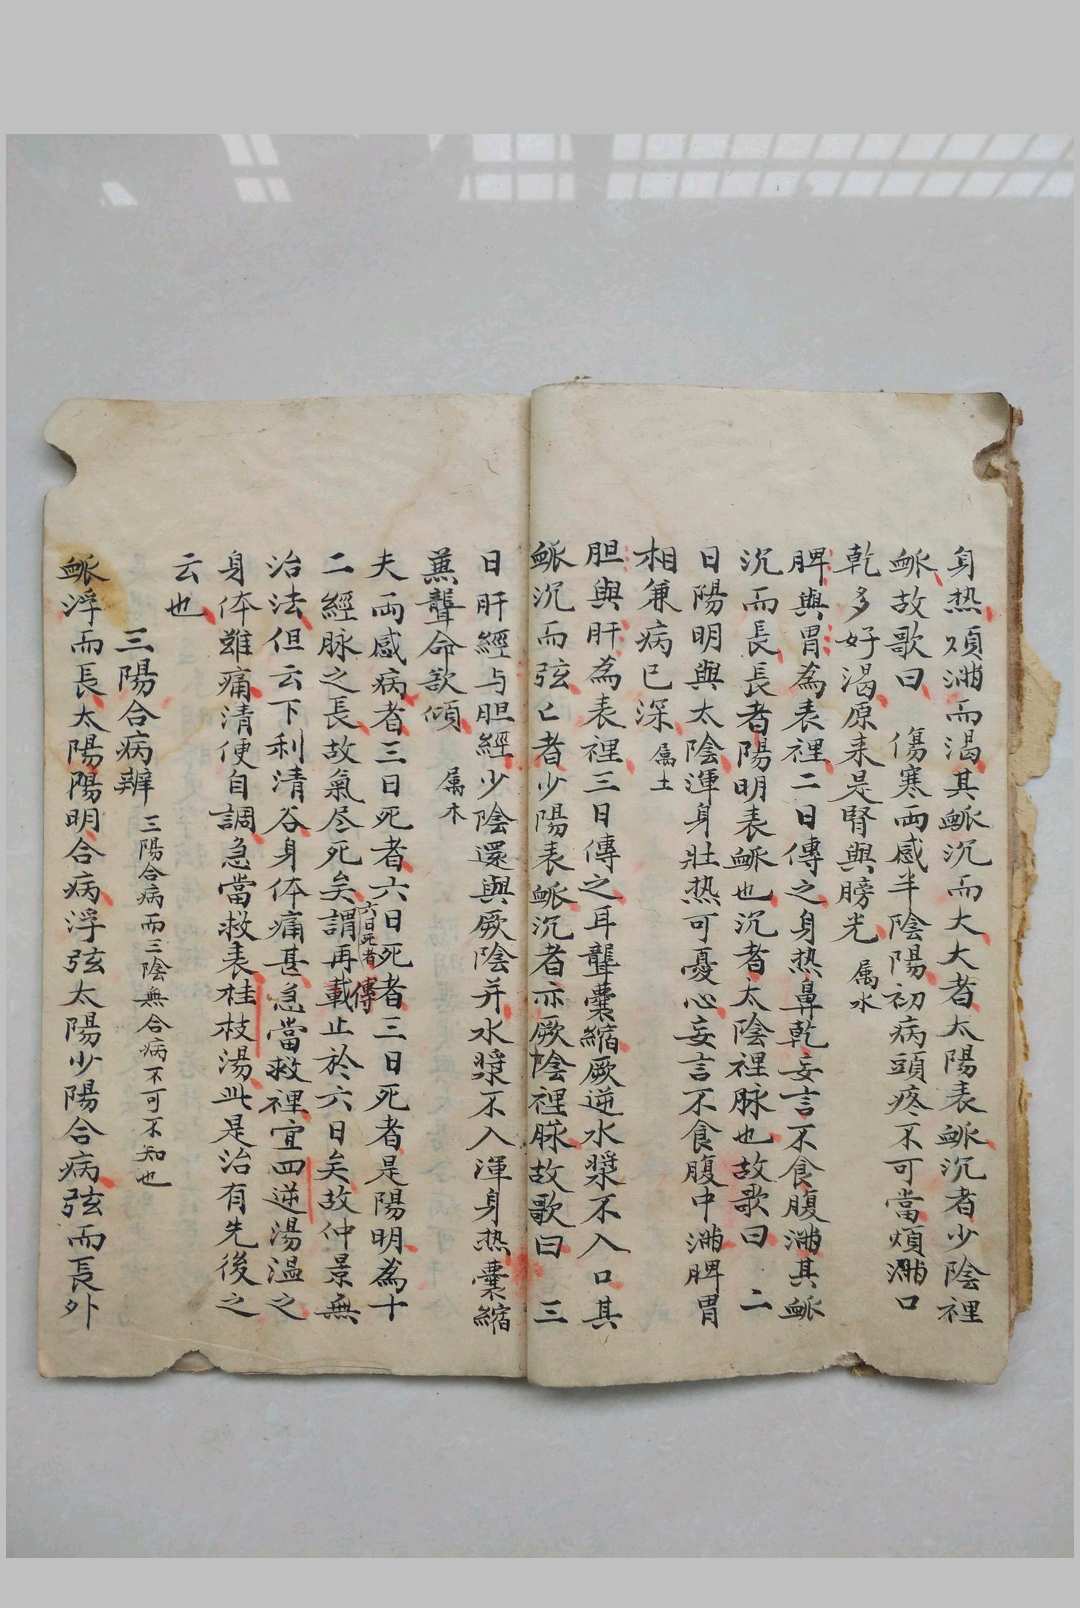 身热煩滿而渴其脈沉而大大者太陽表脈沉者少陰裡
脈故歌曰　傷寒両感半陰陽初病頭疼不可當煩滿口
乾多好渴原来是腎與膀光　属水
脾與胃為表裡二日傳之身热鼻乾妄言不食腹滿其脈
沉而長長者陽明表脈也沉者太陰裡脉也故歌曰　二
日陽明與太陰渾身壯热可憂心妄言不食腹中滿脾胃
相兼病已深　属土
胆與肝為表裡三日傳之耳聾囊縮厥逆水漿不入口其
脈沉而弦〻者少陽表脈沉者亦厥陰裡脉故歌曰　三
日肝經与胆經少陰還與厥陰并水漿不入渾身热囊縮
兼聾命欲傾　属木
夫両感病者三日死者六日死者三日死者是陽明為十
六日死者　傳
二經脉之長故氣尽死矣謂再載止於六日矣故仲景無
治法但云下利清谷身体痛甚急當救裡宜四逆湯温之
身体雖痛清便自調急當救表桂枝湯此是治有先後之
云也
三陽合病辨　三陽合病而三陰無合病不可不知也
脈浮而長太陽陽明合病浮弦太陽少陽合病弦而長外